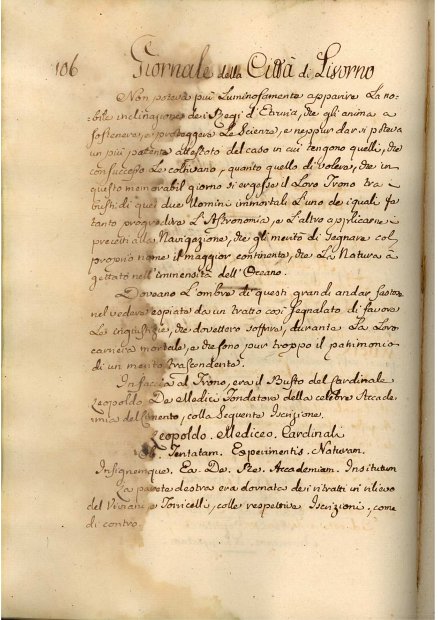 106 Giornale della Città di Livorno
Non poteva più luminosamente apparire la no-
bile inclinazione dei Regi d'Etruria, che gli anima a
sostenere, e proteggere le Scienze, e neppur dar si poteva
un più patente attestato del caso in cui tengono quelli, che
con successo le coltivano, quanto quello di volere, che in
questo memorabil giorno si ergesse il Loro Trono tra
busti di quei due Uomini immortali l'uno dei quali fe
tanto progredire l'Astronomia, e l'altro applicarne i
precetti alla Navigazione, che gli meritò di segnare col
proprio nome il maggior continente, che la Natura à
gettato nell'immensità dell'Oceano.
Doveano l'ombre di questi grandi andar fastose
nel vedere espiate da un tratto così segnalato di favore
le ingiustizie, che dovettero soffrire, durante la loro
carriera mortale, e che sono pur troppo il patrimonio
di un merito trascendente.
In faccia al Trono, era il Busto del Cardinale
Leopoldo De Medici Fondatore della celebre Accade-
mia del Cimento, colla seguente Iscrizione.
Leopoldo. Mediceo. Cardinali
Tentatam. Experimentis. Naturam.
Insignemque. Ea. De. Re. Accademiam. Institutam
La parete destra era adornata dei ritratti in rilievo
del Viviani, e Torricelli, colle respettive Iscrizioni, come
di contro.